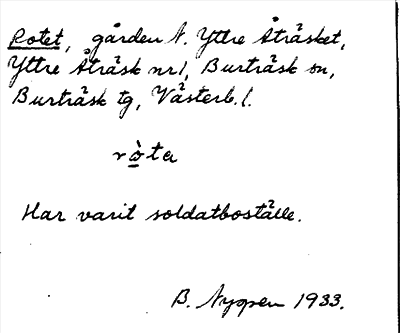 Rotet, gården N. Yttre Åträsket,
Yttre Åträsk nr 1, Burträsk sn,
Burträsk tg, Västerb. l.
ròta
Har varit soldatboställe.
B. Nygren 1933.